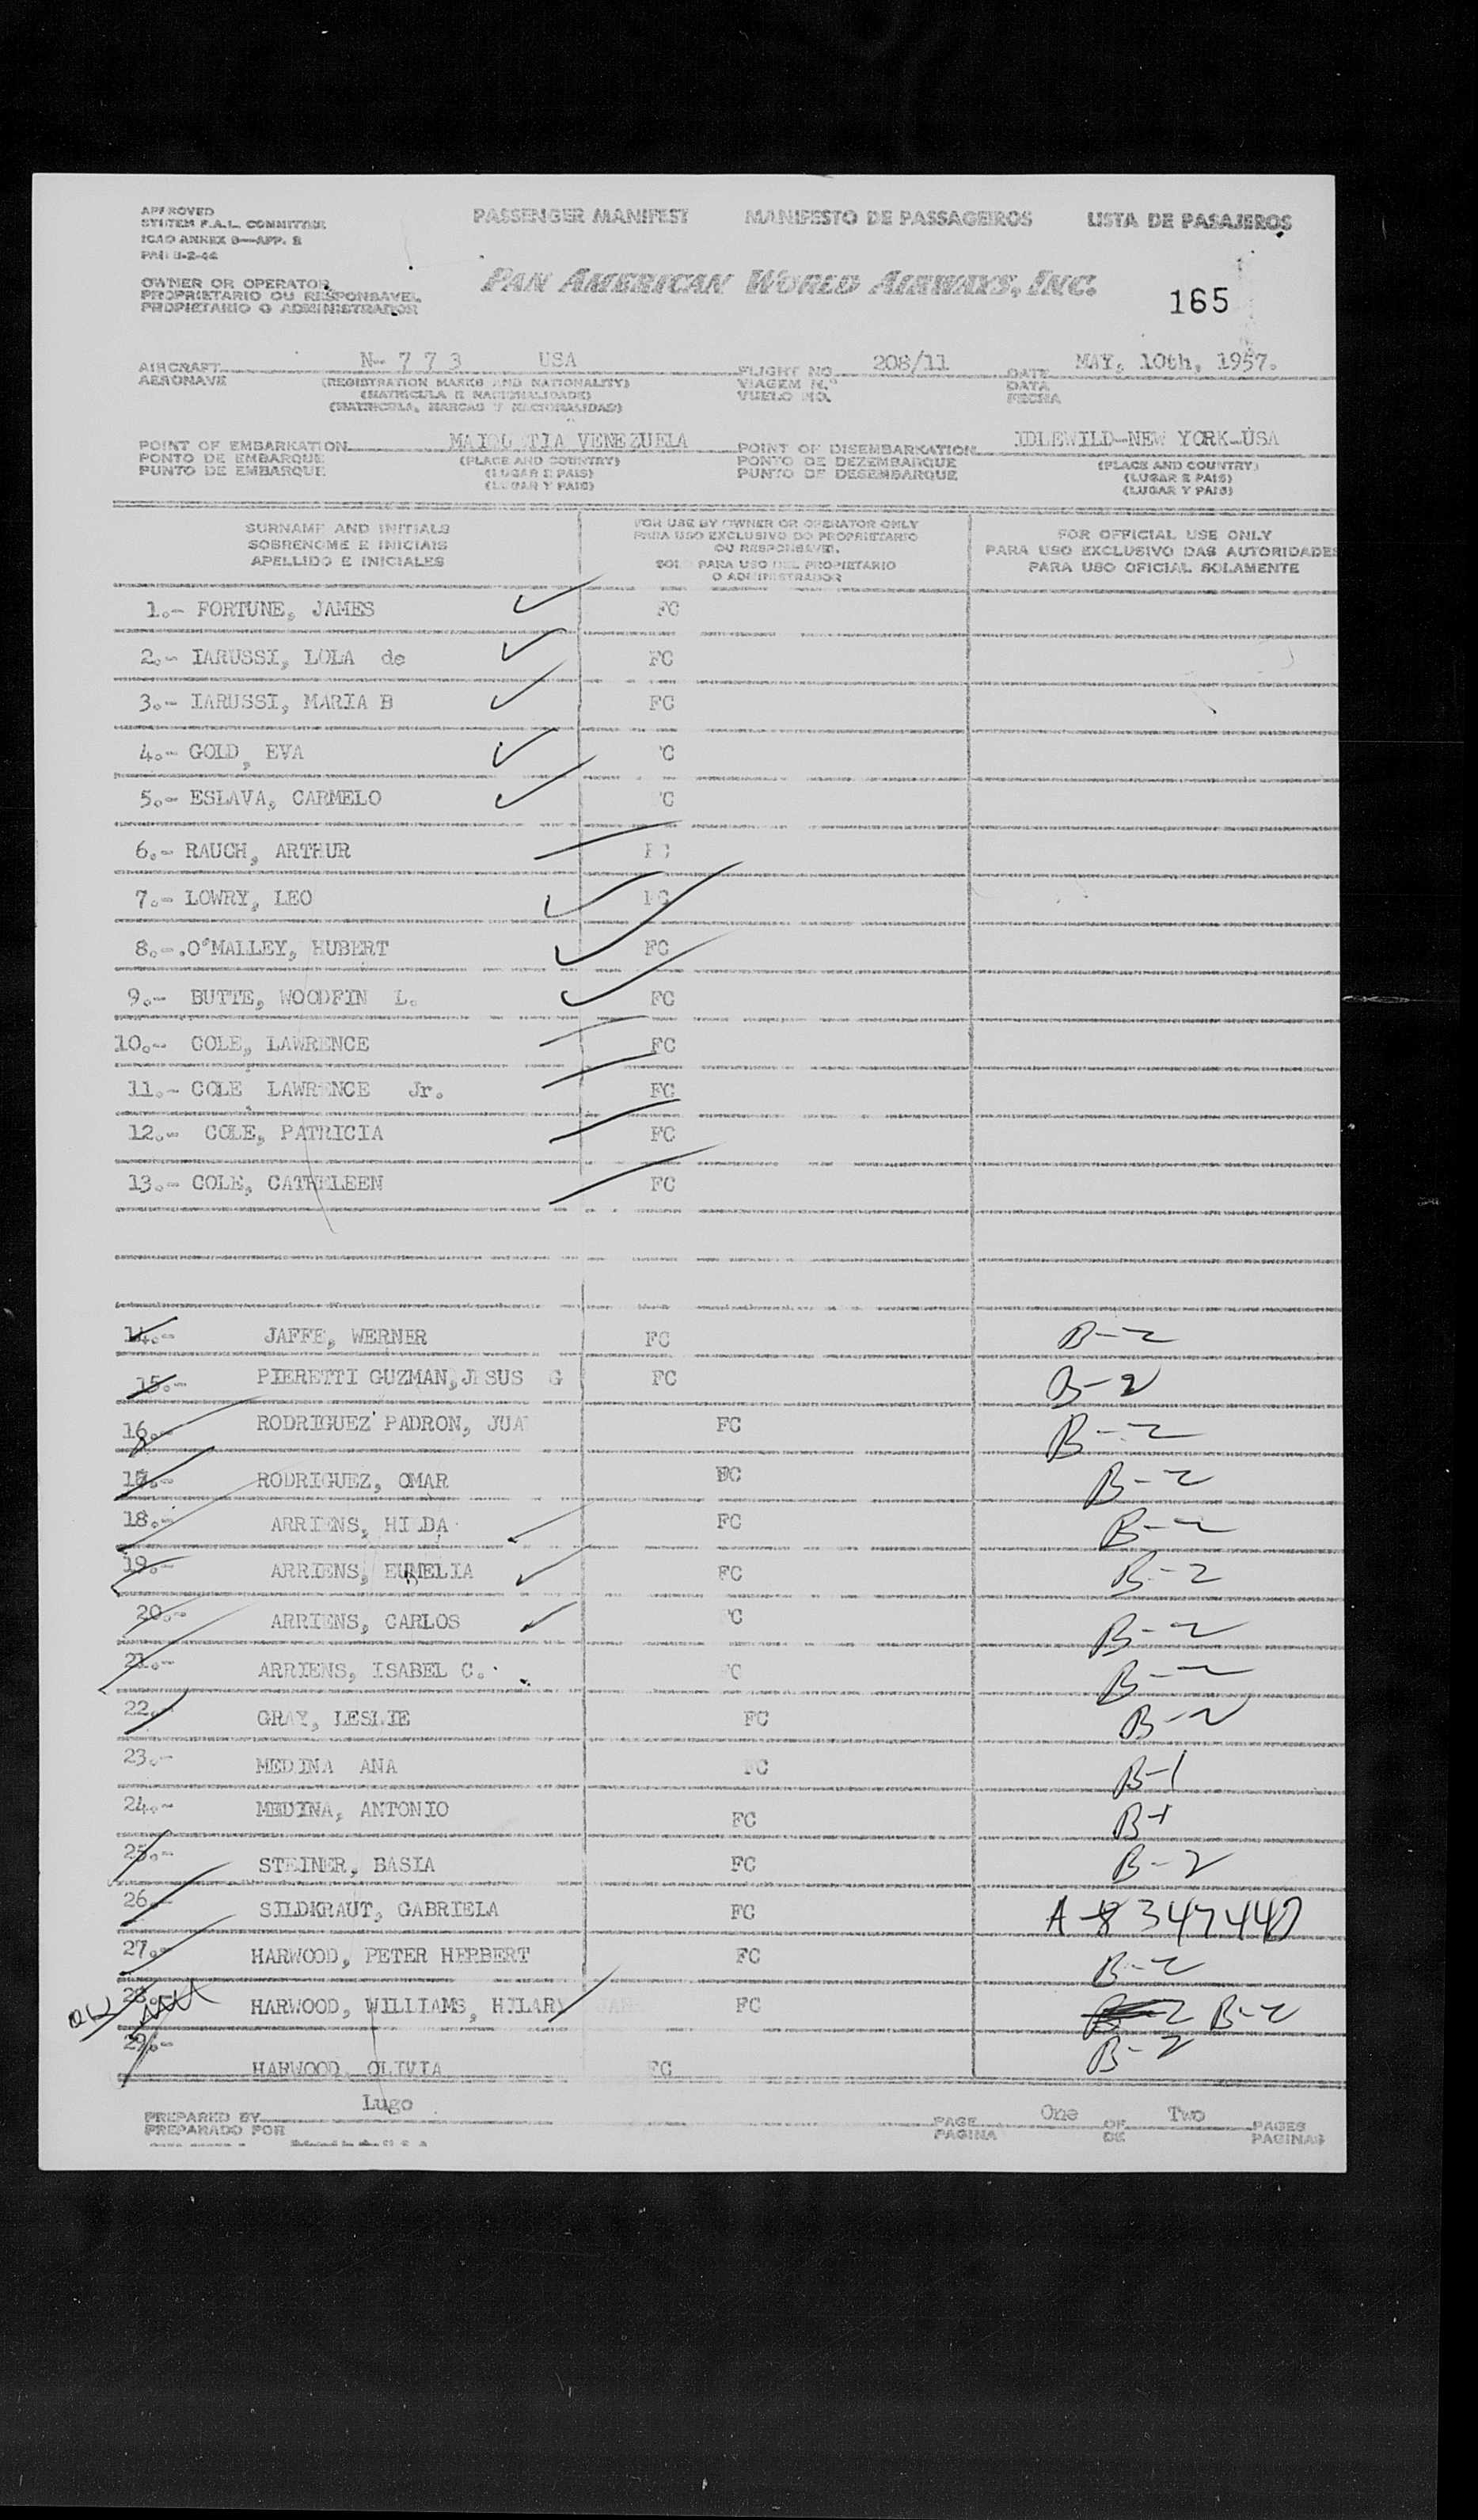 APPROVED
SYSTEM F.A.L. COMMITTEE
ICAO ANNEX 9—APP. 2
PASSENGER MANIFEST MANIFESTO DE PASSAGEIROS LISTA DE PASAJEROS
OWNER OR OPERATOR
PROPRIETARIO OU RESPONSAVEL
PROPIETARIO O ADMINISTRADOR
PAN AMERICAN WORLD AIRWAYS, INC.
165
AIRCRAFT N- 7 7 3 USA FLIGHT NO. 208/11 DATE MAY, 10th, 1957.
AERONAVE (REGISTRATION MARKS AND NATIONALITY) VIAGEM N.º DATA
(MATRICULA E NACIONALIDADE) VUELO NO. FECHA
(MATRICULA, MARCAS Y NACIONALIDAD)
POINT OF EMBARKATION MAIQU TIA VENEZUELA POINT OF DISEMBARKATION IDLEWILD-NEW YORK-USA
PONTO DE EMBARQUE (PLACE AND COUNTRY) PONTO DE DEZEMBARQUE (PLACE AND COUNTRY)
PUNTO DE EMBARQUE (LUGAR E PAIS) PUNTO DE DESEMBARQUE (LUGAR E PAIS)
(LUGAR Y PAIS) (LUGAR Y PAIS)
SURNAME AND INITIALS FOR USE BY OWNER OR OPERATOR ONLY FOR OFFICIAL USE ONLY
SOBRENOME E INICIAIS PARA USO EXCLUSIVO DO PROPRIETARIO PARA USO EXCLUSIVO DAS AUTORIDADES
APELLIDO E INICIALES OU RESPONSAVEL PARA USO OFICIAL SOLAMENTE
SOLO PARA USO DEL PROPIETARIO
O ADMINISTRADOR
1.- FORTUNE, JAMES FC
2.- IARUSSI, LOLA de FC
3.- IARUSSI, MARIA B FC
4.- GOLD, EVA C
5.- ESLAVA, CARMELO C
6.- RAUCH, ARTHUR FC
7.- LOWRY, LEO FC
8.- O'MALLEY, HUBERT FC
9.- BUTTE, WOODFIN L. FC
10.- COLE, LAWRENCE FC
11.- COLE, LAWRENCE Jr. FC
12.- COLE, PATRICIA FC
13.- COLE, CATHELEEN FC
14.- JAFFE, WERNER FC B-2
15.- PIERETTI GUZMAN, JESUS G FC B-2
16.- RODRIGUEZ PADRON, JUA FC B-2
17.- RODRIGUEZ, OMAR FC B-2
18.- ARRIENS, HILDA FC B-2
19.- ARRIENS, EUMELIA FC B-2
20.- ARRIENS, CARLOS C B-2
21.- ARRIENS, ISABEL C. FC B-2
22.- GRAY, LESLIE FC B-2
23.- MEDINA ANA FC B-1
24.- MEDINA, ANTONIO FC B-1
25.- STEINER, BASIA FC B-2
26.- SILDKRAUT, GABRIELA FC A-8347440
27.- HARWOOD, PETER HERBERT FC B-2
28.- HARWOOD, WILLIAMS, HILARY FC B-2 B-2
29.- HARWOOD, OLIVIA FC B-2
PREPARED BY Lugo PAGE One OF Two PAGES
PREPARADO POR PAGINA DE PAGINAS